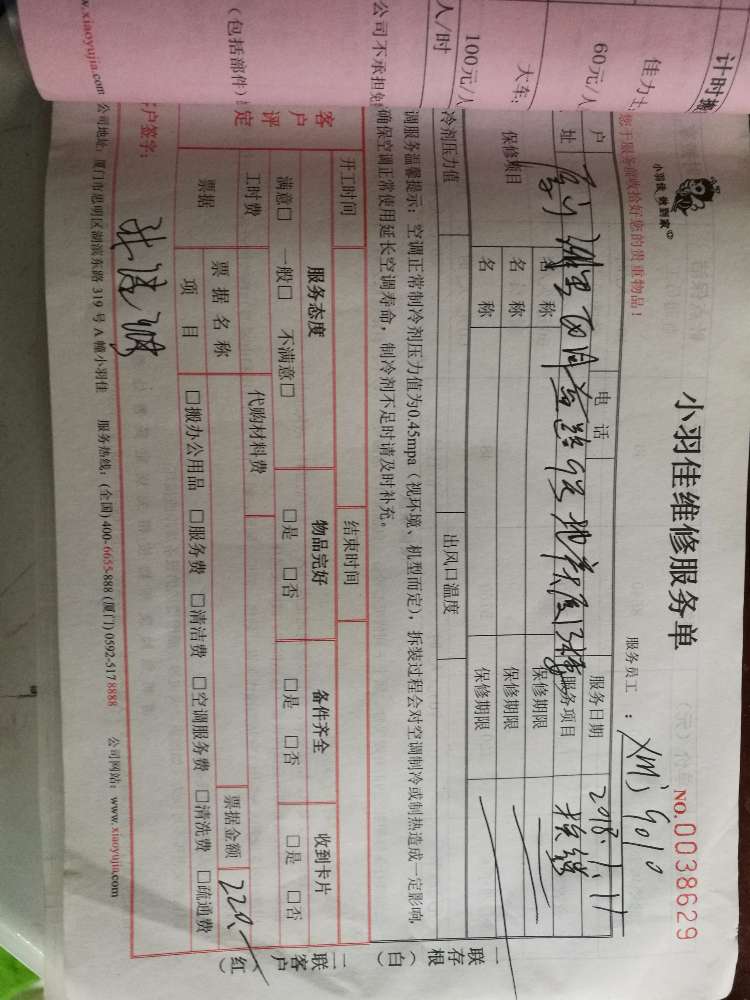 小羽佳维修服务单
小羽佳 收到家
NO.0038629
您于服务前收拾好您的贵重物品！
服务员工：XMJ9010
户
电 话
服务日期
2018.1.11
址
服务项目
保修项目
名 称
保修期限
名 称
保修期限
名 称
保修期限
冷剂压力值
出风口温度
调服务温馨提示：空调正常制冷剂压力值为0.45mpa（视环境、机型而定），拆装过程会对空调制冷或制热造成一定影响，
确保空调正常使用延长空调寿命，制冷剂不足时请及时补充。
开工时间
结束时间
客户评定
服务态度
物品完好
备件齐全
收到卡片
满意□ 一般□ 不满意□
□是 □否
□是 □否
□是 □否
工时费
代购材料费
票据
票 据 名 称
票据金额
220.-
项 目
□搬办公用品 □服务费 □清洁费 □空调服务费 □清洗费 □疏通费
客户签字：
w.xiaoyujia.com 公司地址：厦门市思明区湖滨东路 319 号 A 幢小羽佳 服务热线：(全国) 400-6655-888 (厦门) 0592-5178888 公司网站：www.xiaoyujia.com
一联存根（白）
二联客户（红）
计时
佳力士
60元/人
大车
100元/人
人/时
公司不承担
（包括部件）